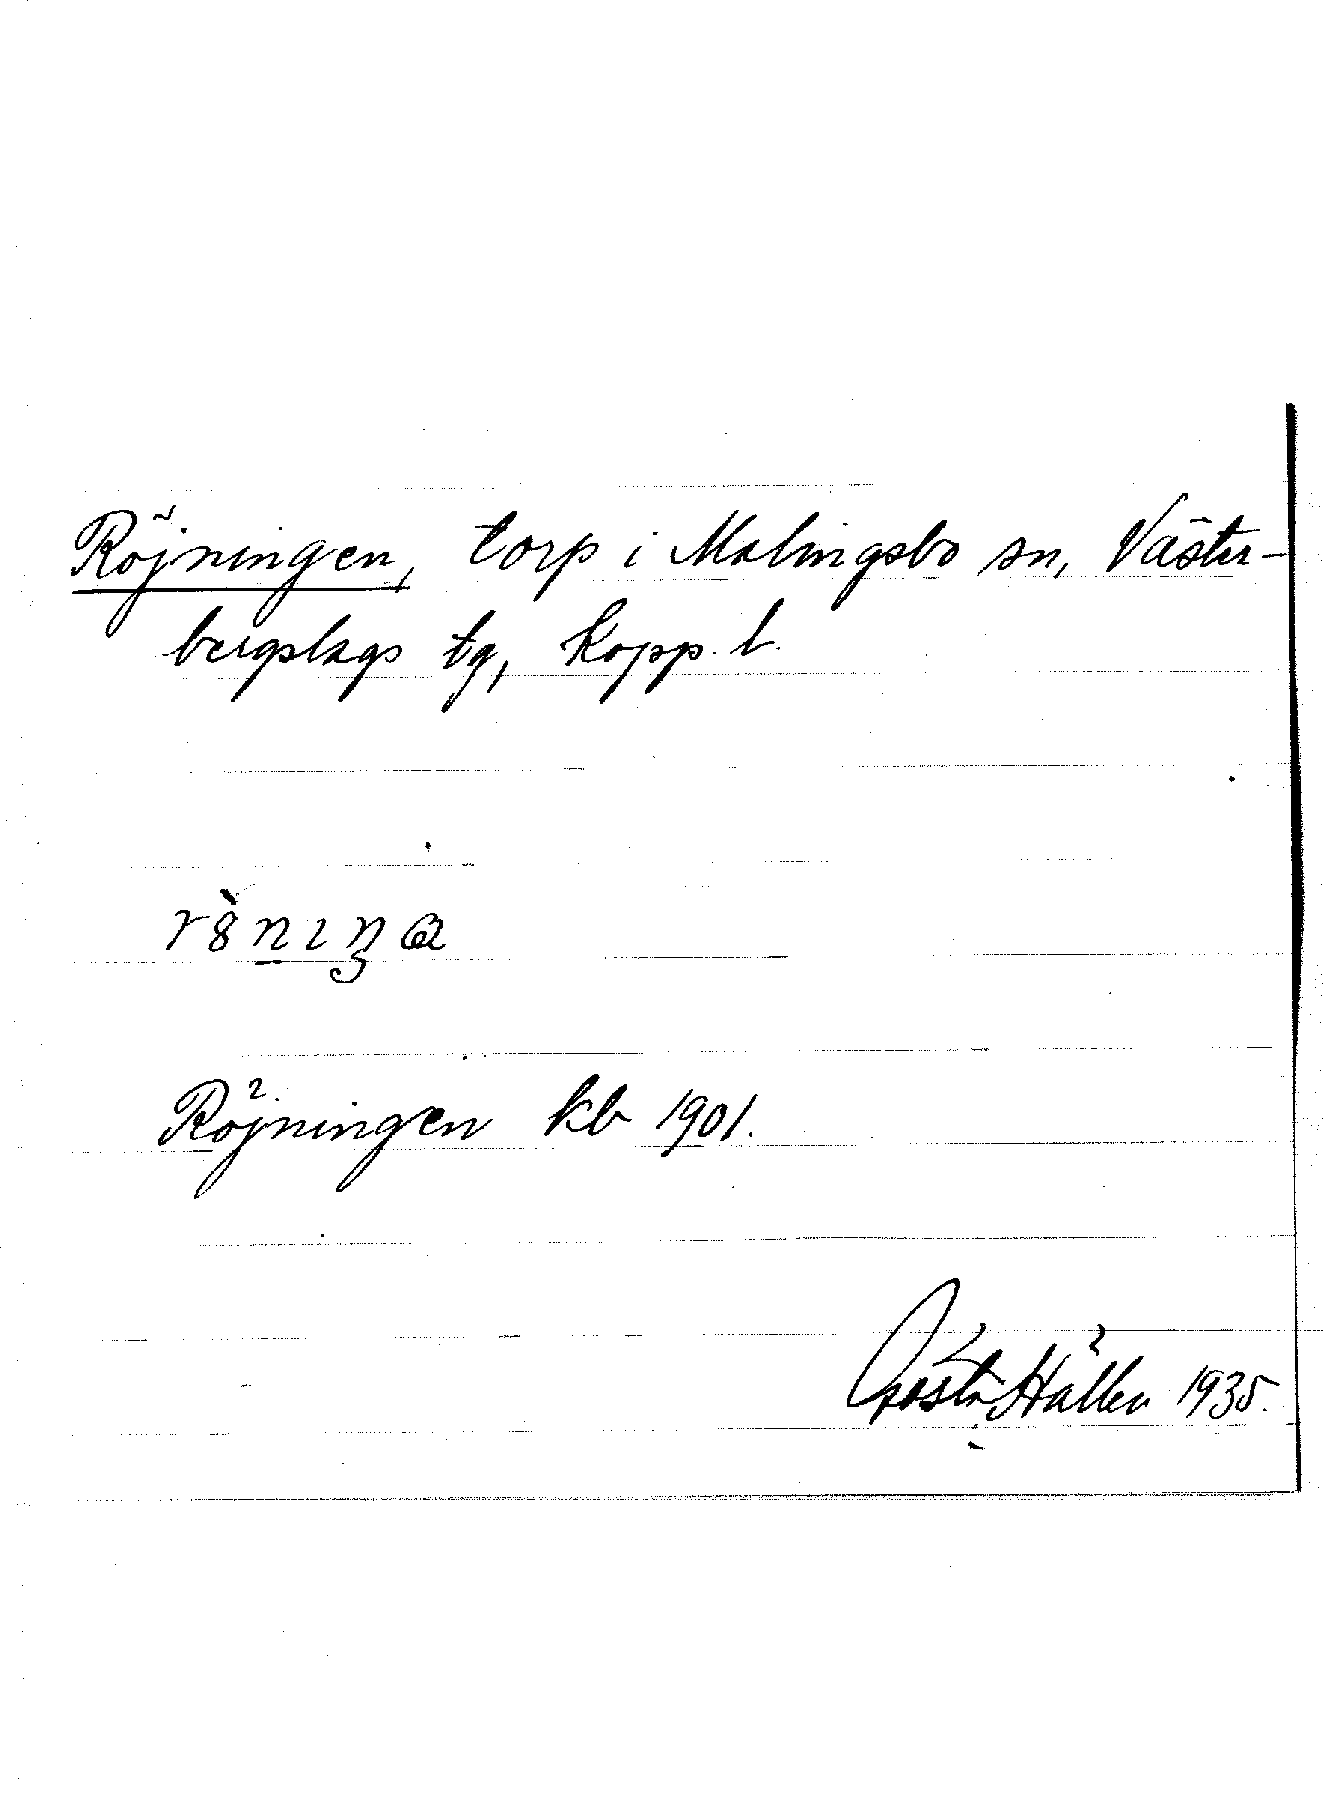 Röjningen, torp i Malingsbo sn, Väster-
bergslags tg, Kopp. l.
Röjningen kb 1901.
Gösta Hållen 1935.